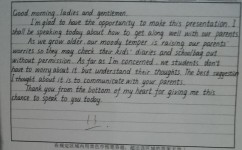 Good morning, ladies and gentlemen.
I'm glad to have the opportunity to make this presentation. I
shall be speaking today about how to get along well with our parents.
As we grow older, our moody temper is raising our parents'
worries so they may check their kids' diaries and schoolbag out
without permission. As far as I'm concerned, we students don't
have to worry about it but understand their thoughts. The best suggestion
I thought about it is to communicate with your parents.
Thank you from the bottom of my heart for giving me this
chance to speak to you today.